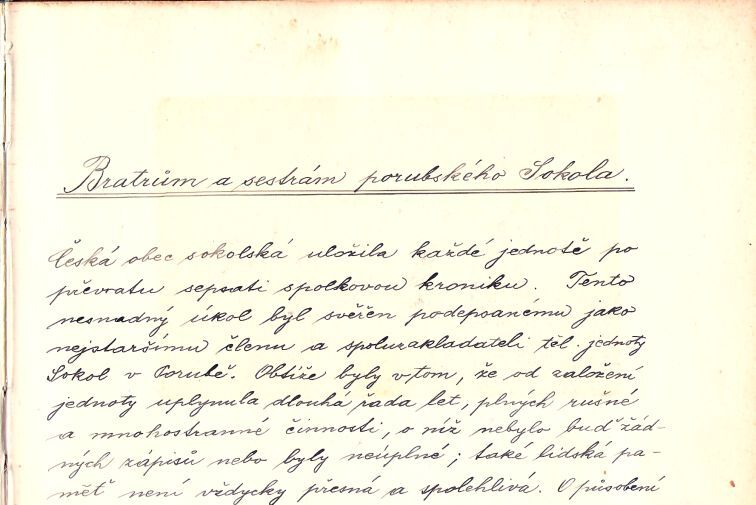 Bratrům a sestrám porubského Sokola.
Česká obec sokolská uložila každé jednotě po
převratu sepsati spolkovou kroniku. Tento
nesnadný úkol byl svěřen podepsanému jako
nejstaršímu členu a spoluzakladateli těl. jednoty
Sokol v Porubě. Obtíže byly v tom, že od založení
jednoty uplynula dlouhá řada let, plných rušné
a mnohostranné činnosti, o níž nebylo buď žád-
ných zápisů nebo byly neúplné; také lidská pa-
měť není vždycky přesná a spolehlivá. O působení